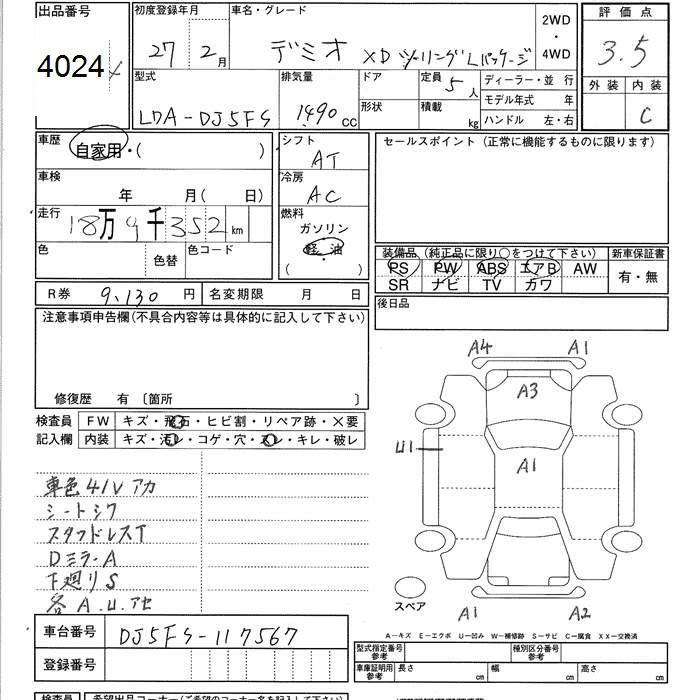 出品番号
4024
初度登録年月
27年2月
車名・グレード
デミオ XD ツーリングLパッケージ
2WD
・
4WD
評価点
3.5
外装 内装
C
型式
LDA-DJ5FS
排気量
1490 cc
ドア
形状
定員 5人
積載 kg
ディーラー・並行
モデル年式 年
ハンドル 左・右
車歴
自家用・( )
車検
年 月( 日)
走行
18万9千352km
色 色替 色コード
シフト
AT
冷房
AC
燃料
ガソリン
・
軽油
( )
セールスポイント(正常に機能するものに限ります)
装備品(純正品に限り○をつけて下さい)
PS PW ABS エアB AW
SR ナビ TV カワ
新車保証書
有・無
R券 9,130 円 名変期限 月 日
後日品
注意事項申告欄(不具合内容等は具体的に記入して下さい)
修復歴 有 〔箇所 〕
検査員 FW キズ・飛石・ヒビ割・リペア跡・×要
記入欄 内装 キズ・汚レ・コゲ・穴・スレ・キレ・破レ
車色41Vアカ
シートシワ
スタッドレスT
Dミラ-A
下廻りS
各A.U.アセ
A4 A1
A3
U1
A1
スペア
A1 A2
A-キズ E-エクボ U-凹み W-補修跡 S-サビ C-腐食 XX-交換済
車台番号 DJ5FS-117567
登録番号
型式指定番号 参考
種別区分番号 参考
車庫証明用 参考 長さ 幅 高さ
cm cm cm
検査員 希望出品コーナー(ご希望のコーナー名を記入して下さい)